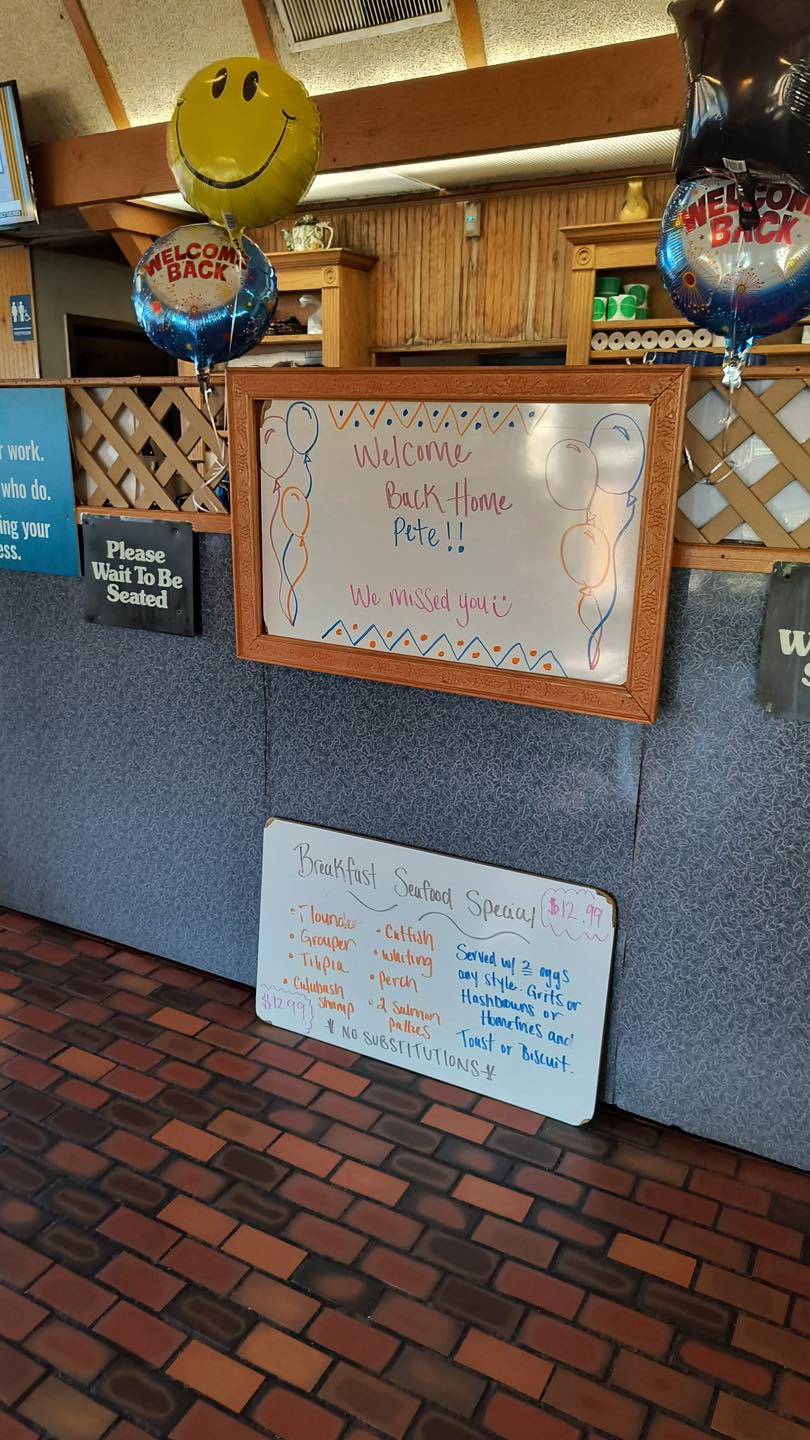 WELCOME
BACK
WELCOM
BACK
r work.
who do.
ing your
ess.
Please
Wait To Be
Seated
Welcome
Back Home
Pete!!
We missed you
W
S
Breakfast Seafood Special
$12.99
• Flounder
• Grouper
• Tilipia
• Calabash
Shrimp
$12.99
• Catfish
• Whiting
• Perch
• 2 Salmon
patties
Served w/ 2 eggs
any style. Grits or
Hashbrowns or
Homefries and
Toast or Biscuit.
* NO SUBSTITUTIONS *